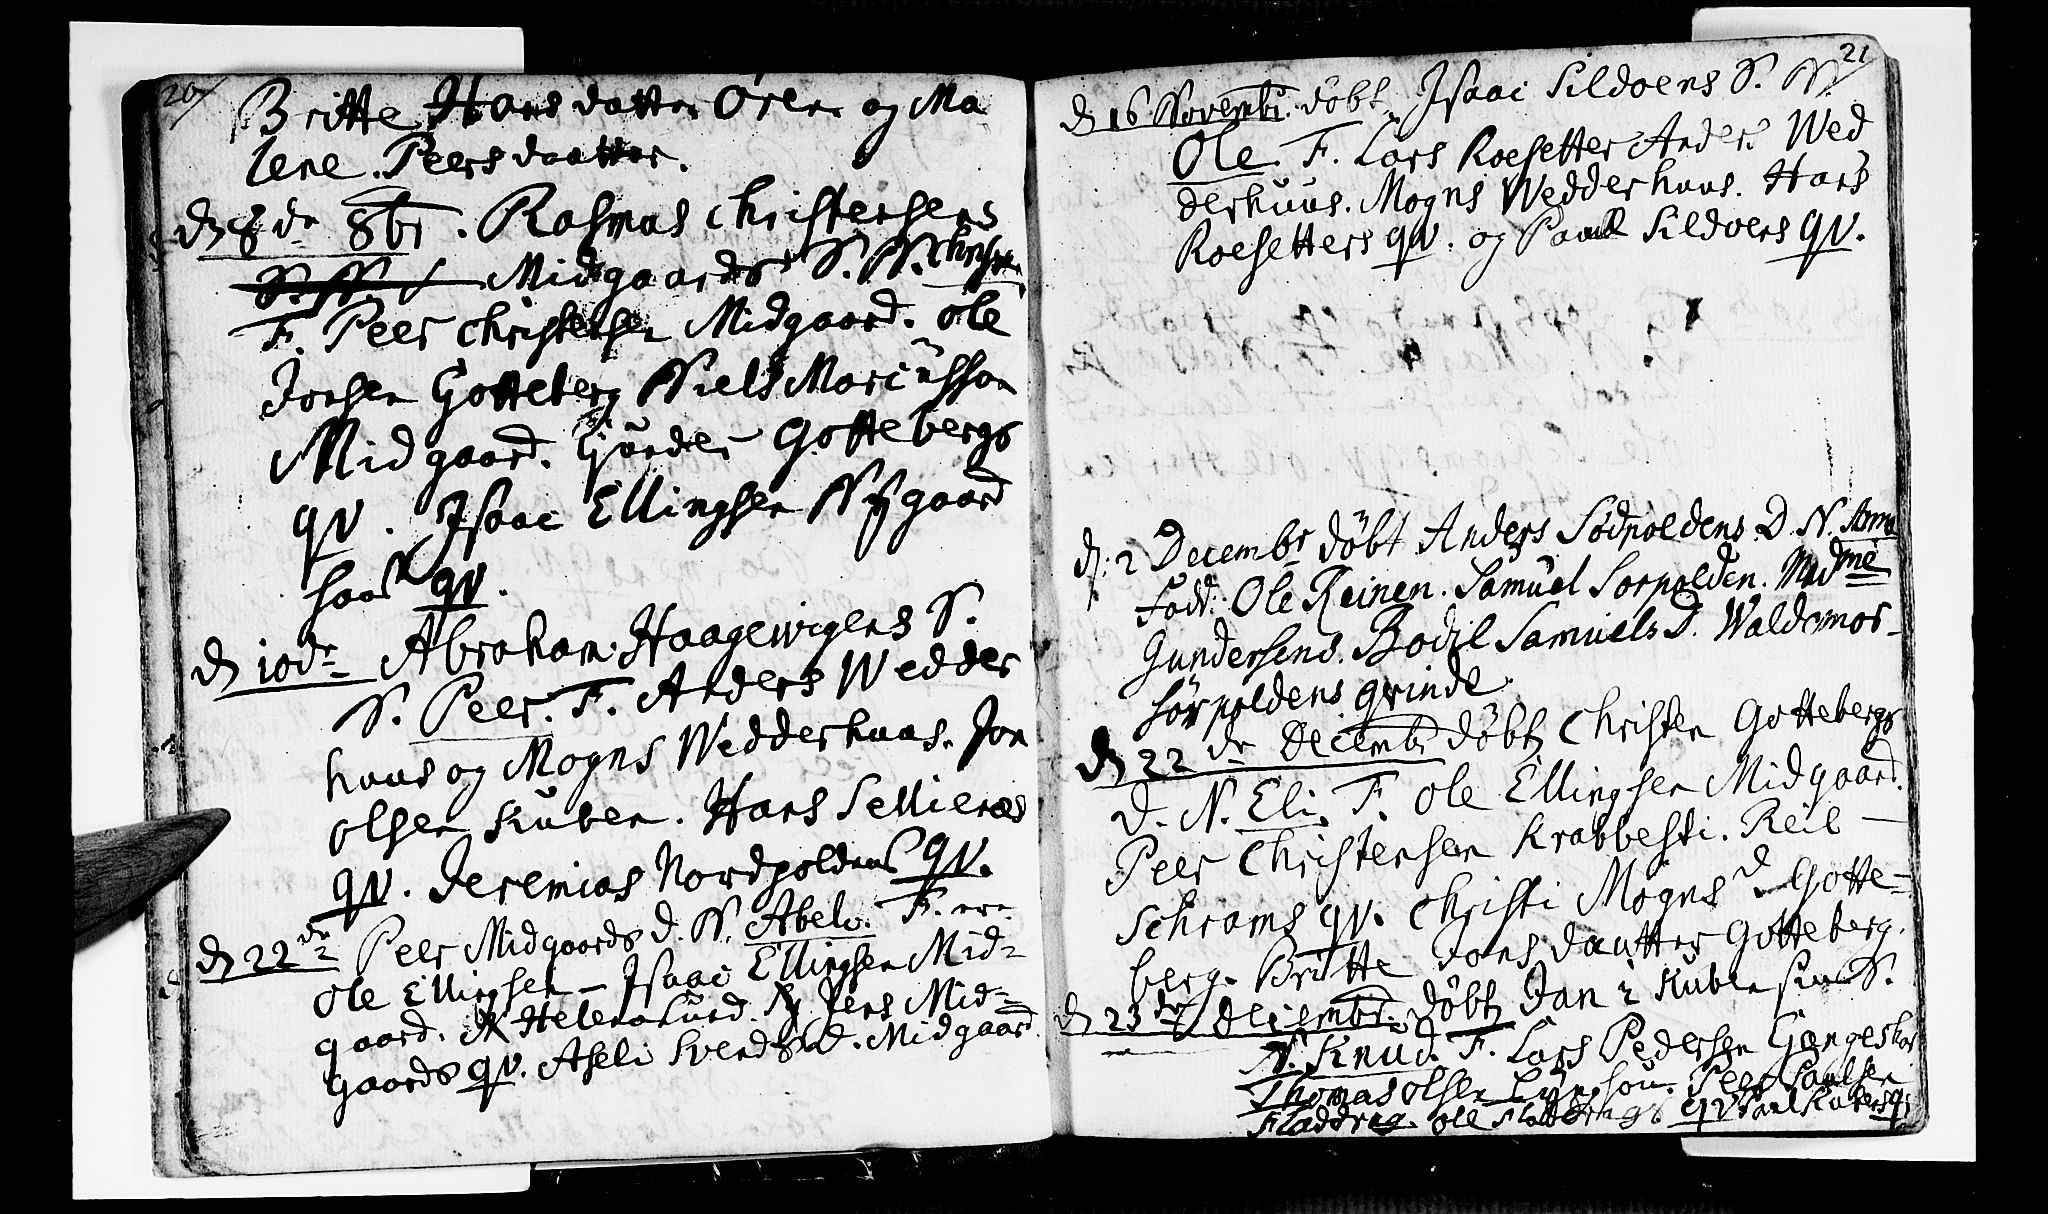 20
Britte Hans datter Ören og Ma
lene Peersdaatter.
d 8de 8br. Rasmus Christensens
S. N. Midgaards S. N. Christen
F. Peer Christensen Midgaard. Ole
Jonsen Gotteberg Niels Mariusson
Midgaard. Giörder Gottebergs
qv. Isaac Ellingsen Nygaard
qv.
d 10de Abraham Haagewigens S.
S. Peer. F. Anders Wedder
huus og Mogns Wedderhuus. Jon
Olsen Kuben. Hans Sellienæs
qv. Jeremias Nordpoldens qv.
d 22de Peer Midgaards d. N. Abelo. F.
Ole Ellingsen – Isaac Ellingsen Mid-
gaard. Helena Lund. Jens Mid-
gaards qv. Aseli Svends d. Midgaard
21
d 16 Novembr. döbt Isaac Sildoens S. N
Ole. F. Lars Roesetter Anders Wed
derhuus. Mogns Wedderhuus. Hans
Roesetters qv. og Paul Sildoens qv.
d. 2 Decembr döbt Anders Södpoldens. D. N. Anna
Fadd: Ole Reinen. Samuel Sörpolden. Madme
Gundersens. Bodil Samuels D. Waldemor-
Sörpoldens qvinde.
d 22de Decembr döbt Christen Gottebergs
D. N. Eli. F. Ole Ellingsen Midgaard.
Peer Christensen Krabbesti. Reil –
Schrams qv. Christi Mogns d Gotte-
berg. Britte Jons dautter Gotteberg.
d 23de Decembr. döbt Jan i Kuben sin S.
N. Knud. F. Lars Pedersen Gangeskar
Thomas Olsen Peer Paulsen
Fladdrag. Ole Fladdrags qv Paul Kubens q